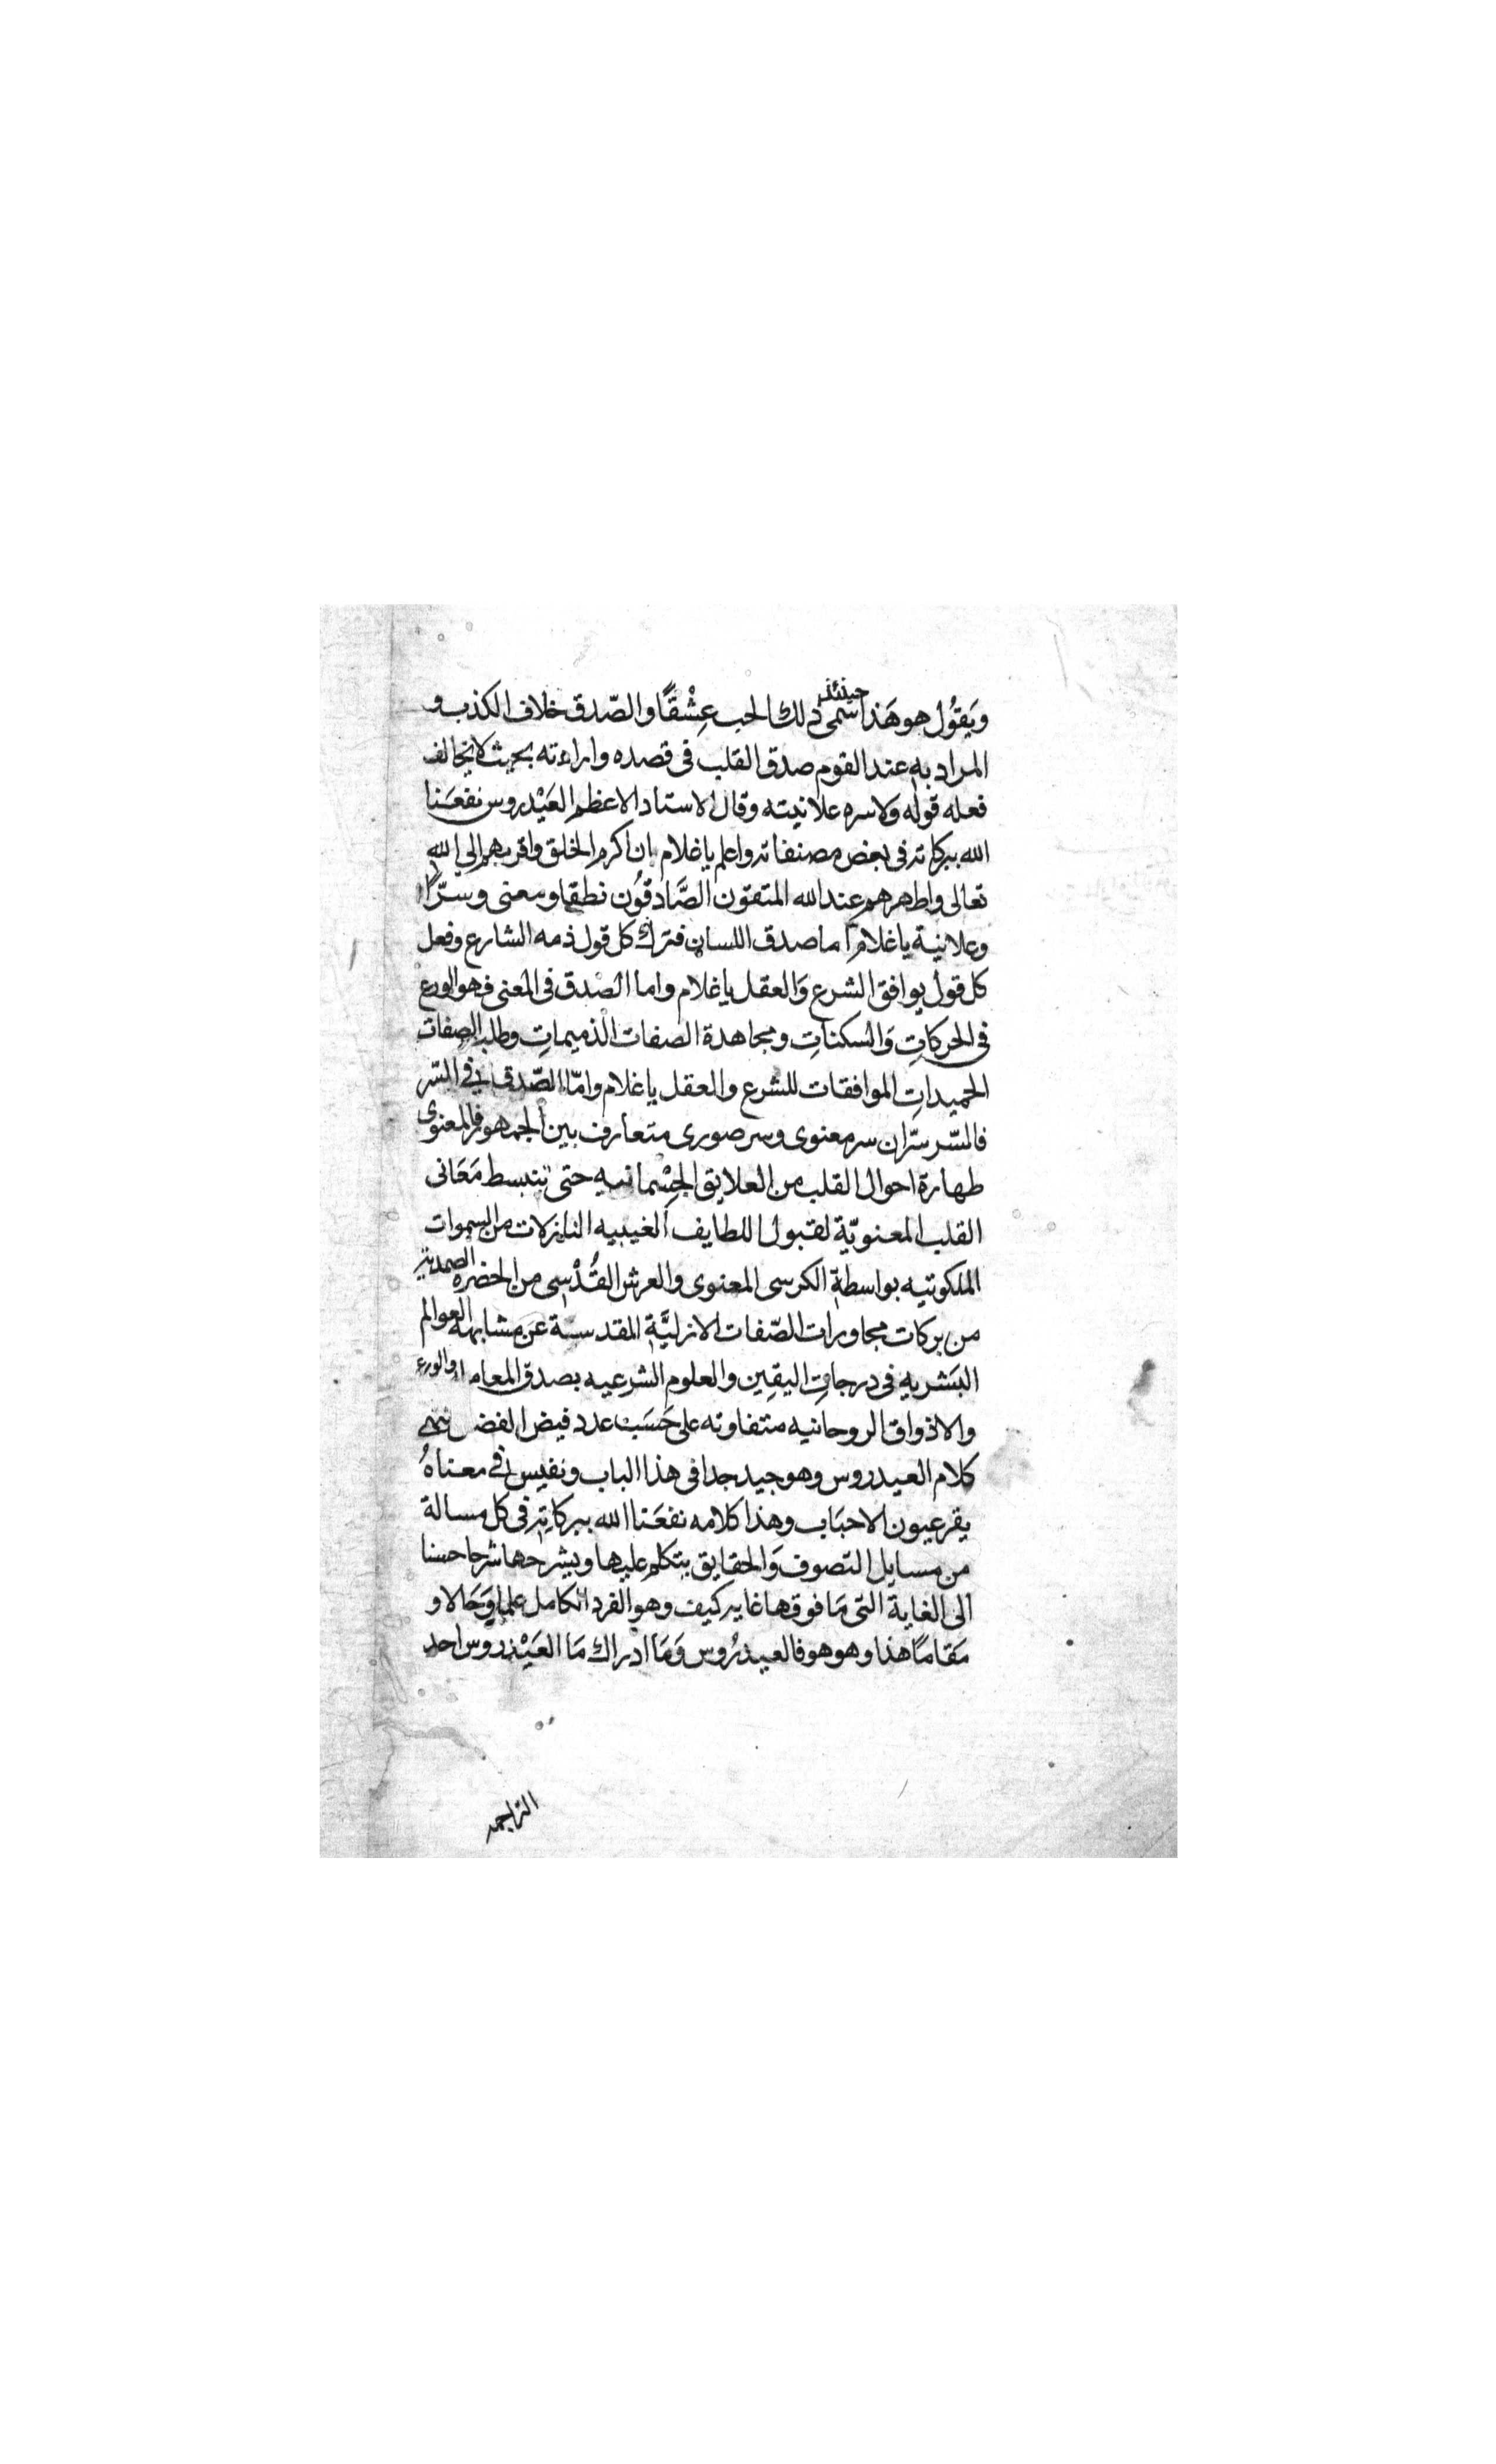 ويَقوُل هو هَذا حينئذ سمى ذلك الحب عِشْقًا والصّدق خلاف الكذب و
المراد به عند القوم صدق القلب فى قصده وارادته بحيث لا يخالف
فعله قوله ولا سره علانيته وقال الاستاد الاعظم العَيْدروس نفعَنا
الله ببركاته فى بعض مصنفاته واعلم ياغلام ان اكرم الخلق واقربهم الى الله
تعالى واطهرهم عند الله المتقون الصَّادقوُن نطقا ومعنى وسرًّا
وعلانية ياغلام اما صدق اللسان فترك كل قول ذمه الشارع وفعل
كل قول يوافق الشرع وَالعقل ياغلام واما الصدق فى المعنى فهو الورع
فى الحركاتِ وَالسكناتِ ومجاهدة الصفات الذميماتِ وطلب الصفات
الحميداتِ الموافقات للشرع والعقل ياغلام وامّا الصّدق فى السّر
فالسّر سرّان سر معنوى وسر صورى متعارف بين الجمهور فالمعنوى
طهارة احوال القلب من العلايق الجِسْمانيه حتى تنبسط مَعَانى
القلب المعنويّة لقبول اللطايف الغيبيه النازلات من السموات
الملكوتيه بواسطة الكرسى المعنوى والعرش القُدْسِى من الحضره الصمديه
من بركات مجاورات الصّفات الازليَّةِ المقدسة عن مشابهة العوالم
البَشريه فى درجاتِ اليقِين والعلوم الشرعيه بصدق المعاملة والورع
والاذواق الروحانيه متفاوته على حَسَب عدد فيض الفضل انتهى
كلام العيدروس وهو جيد جدا فى هذا الباب ونفيس فى معناهُ
يقر عيون الاحبَاب وهذا كلامه نفعَنا الله ببركاتِه فى كل مسالة
من مسايل التصوف وَالحقايق يتكلم عليها ويشرحها شرحا حسنا
الى الغاية التى مَا فوقها غايه كيف وهو الفرد الكامل علما وَحَالا و
مَقامًا هذا وهو هو فالعيدرُوس وَمَا ادْراك مَا العَيْدرُوس احد
التراجمه